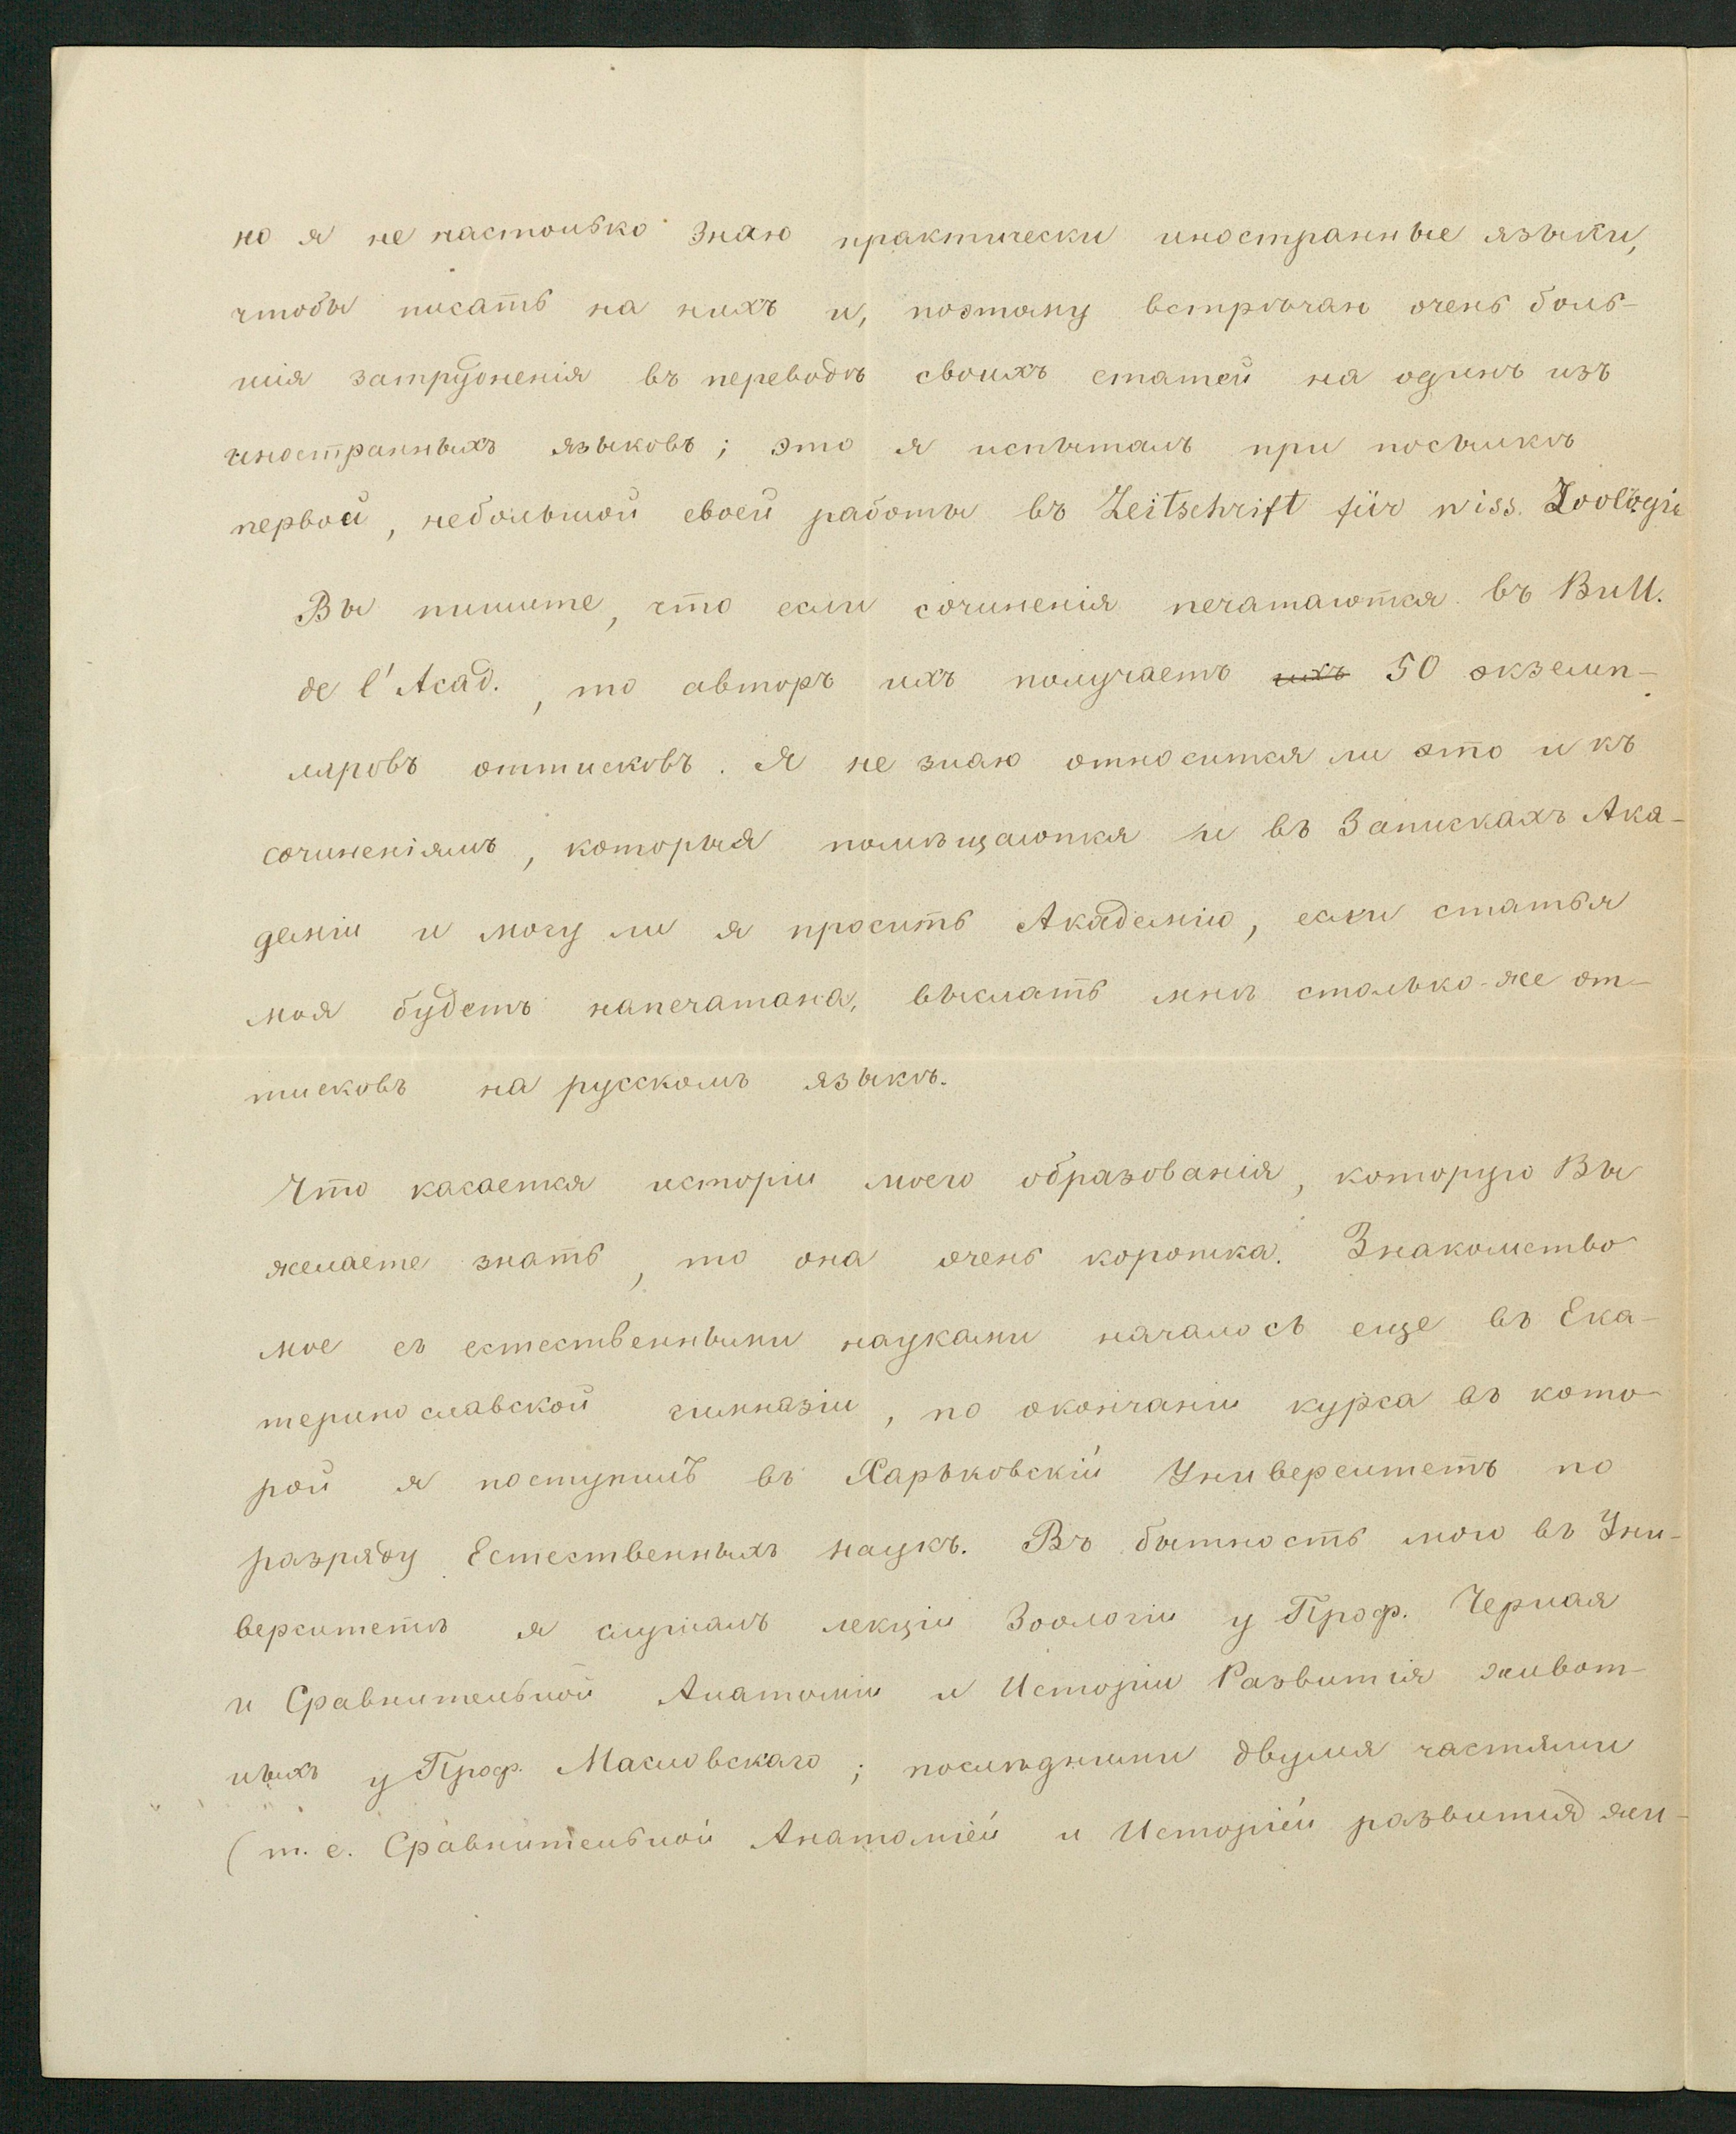 но я не настолько знаю практически иностранные языки,
чтобы писать на нихъ и, поэтому встрѣчаю очень боль-
шія затрудненія въ переводѣ своихъ статей на одинъ изъ
иностранныхъ языковъ; это я испыталъ при посылкѣ
первой, небольшой своей работы въ Zeitschrift für wiss. Zoologie
Вы пишите, что если сочиненія печатаются въ Bull.
de l'Acad., то авторъ ихъ получаетъ ихъ 50 экземп-
ляровъ оттисковъ. Я не знаю относится ли это и къ
сочиненіямъ, которыя помѣщаются и въ Запискахъ Ака-
деміи и могу ли я просить Академію, если статья
моя будетъ напечатана, выслать мнѣ столько-же от-
тисковъ на русскомъ языкѣ.
Что касается исторіи моего образованія, которую Вы
желаете знать, то она очень коротка. Знакомство
мое съ естественными науками началось еще въ Ека-
теринославской гимназіи, по окончаніи курса въ кото-
рой я поступилъ въ Харьковскій Университетъ по
разряду Естественныхъ наукъ. Въ бытность мою въ Уни-
верситетѣ я слушалъ лекціи Зоологіи у Проф. Черная
и Сравнительной Анатоміи и Исторіи Развитія живот-
ныхъ у Проф. Масловскаго; послѣдними двумя частями
(т. е. Сравнительной Анатоміей и Исторіей развитія жи-